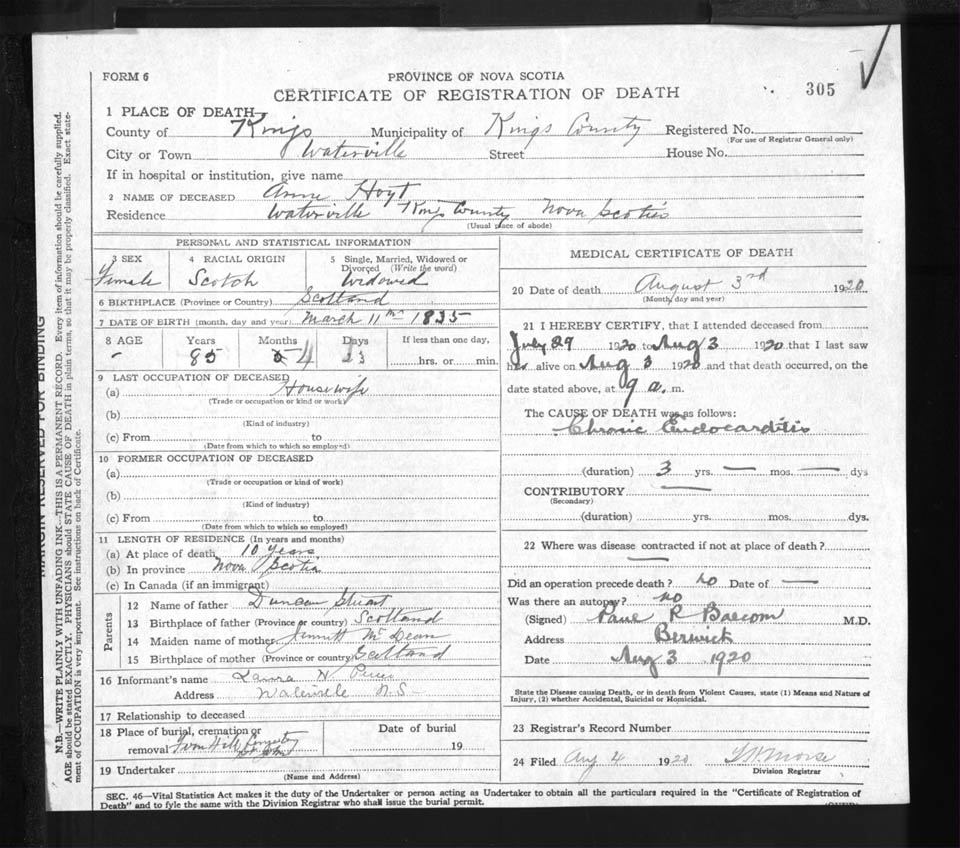 FORM 6
PROVINCE OF NOVA SCOTIA
CERTIFICATE OF REGISTRATION OF DEATH
305
1 PLACE OF DEATH
County of Kings Municipality of Kings County Registered No.
(For use of Registrar General only)
City or Town Waterville Street House No.
If in hospital or institution, give name
2 NAME OF DECEASED Anne Hoyt
Residence Waterville Kings County Nova Scotia
(Usual place of abode)
PERSONAL AND STATISTICAL INFORMATION
3 SEX 4 RACIAL ORIGIN 5 Single, Married, Widowed or Divorced (Write the word)
Female Scotch Widowed
6 BIRTHPLACE (Province or Country) Scotland
7 DATE OF BIRTH (month, day and year) March 11th 1835
8 AGE Years Months Days If less than one day,
- 85 4 23 hrs. or min.
9 LAST OCCUPATION OF DECEASED
(a) Housewife
(Trade or occupation or kind or work)
(b)
(Kind of industry)
(c) From to
(Date from which to which so employed)
10 FORMER OCCUPATION OF DECEASED
(a)
(Trade or occupation or kind of work)
(b)
(Kind of industry)
(c) From to
(Date from which to which so employed)
11 LENGTH OF RESIDENCE (In years and months)
(a) At place of death 10 years
(b) In province Nova Scotia
(c) In Canada (if an immigrant)
Parents
12 Name of father Duncan Stuart
13 Birthplace of father (Province or country) Scotland
14 Maiden name of mother Jennett McDean
15 Birthplace of mother (Province or country) Scotland
16 Informant's name Laura N
Address Waterville N.S
17 Relationship to deceased
18 Place of burial, cremation or removal Date of burial
19
19 Undertaker
(Name and Address)
MEDICAL CERTIFICATE OF DEATH
20 Date of death August 3rd 1920
(Month, day and year)
21 I HEREBY CERTIFY, that I attended deceased from
July 29 1920 to Aug 3 1920 that I last saw
her alive on Aug 3 1920 and that death occurred, on the
date stated above, at 9 a. m.
The CAUSE OF DEATH was as follows:
Chronic Endocarditis
(duration) 3 yrs. — mos. — dys
CONTRIBUTORY —
(Secondary)
(duration) yrs. mos. dys.
22 Where was disease contracted if not at place of death?
—
Did an operation precede death? no Date of —
Was there an autopsy? no
(Signed) R M.D.
Address Berwick
Date Aug 3 1920
State the Disease causing Death, or in death from Violent Causes, state (1) Means and Nature of
Injury, (2) whether Accidental, Suicidal or Homicidal.
23 Registrar's Record Number
24 Filed Aug 4 1920 Morse
Division Registrar
SEC. 46—Vital Statistics Act makes it the duty of the Undertaker or person acting as Undertaker to obtain all the particulars required in the "Certificate of Registration of
Death" and to fyle the same with the Division Registrar who shall issue the burial permit.
(OVER)
MARGIN RESERVED FOR BINDING
N.B.—WRITE PLAINLY WITH UNFADING INK—THIS IS A PERMANENT RECORD. Every item of information should be carefully supplied.
AGE should be stated EXACTLY. PHYSICIANS should STATE CAUSE OF DEATH in plain terms, so that it may be properly classified. Exact state-
ment of OCCUPATION is very important. See instructions on back of Certificate.